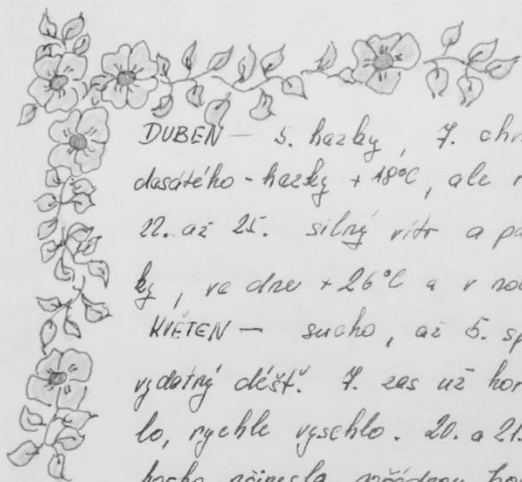 DUBEN — 5. hezky, 7. chr
desátého - hezky + 18°C, ale
22. až 25. silný vítr a pa
ky, ve dne + 26°C a v no
KVĚTEN — sucho, až 5. sp
vydatný déšť. 7. zas už hor
lo, rychle vyschlo. 20. a 21.
přinesla pořádnou